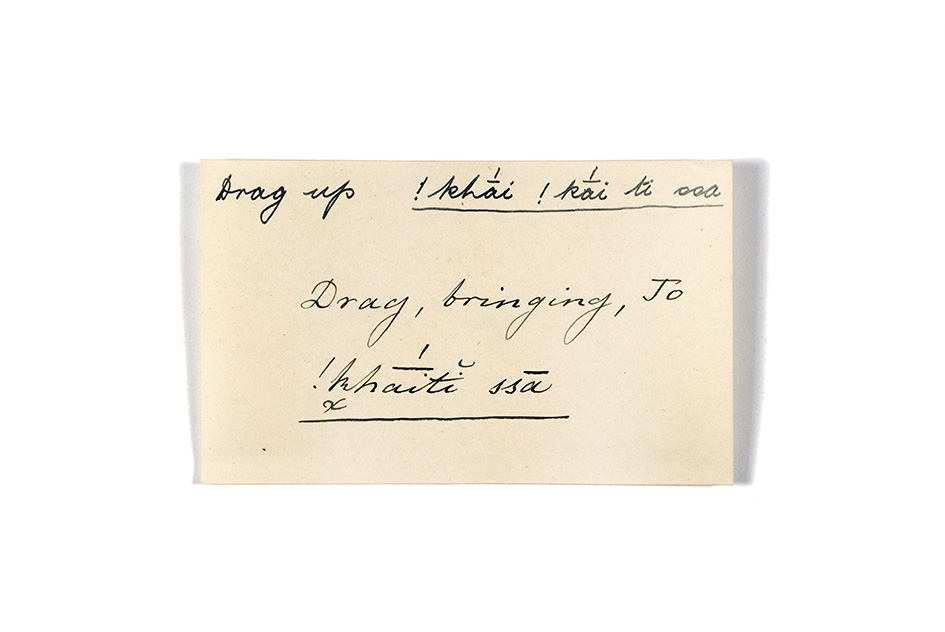 Drag up !khā́i !kā́i ti ssa
Drag, bringing, To
!k͓hā́ītĭ ssā